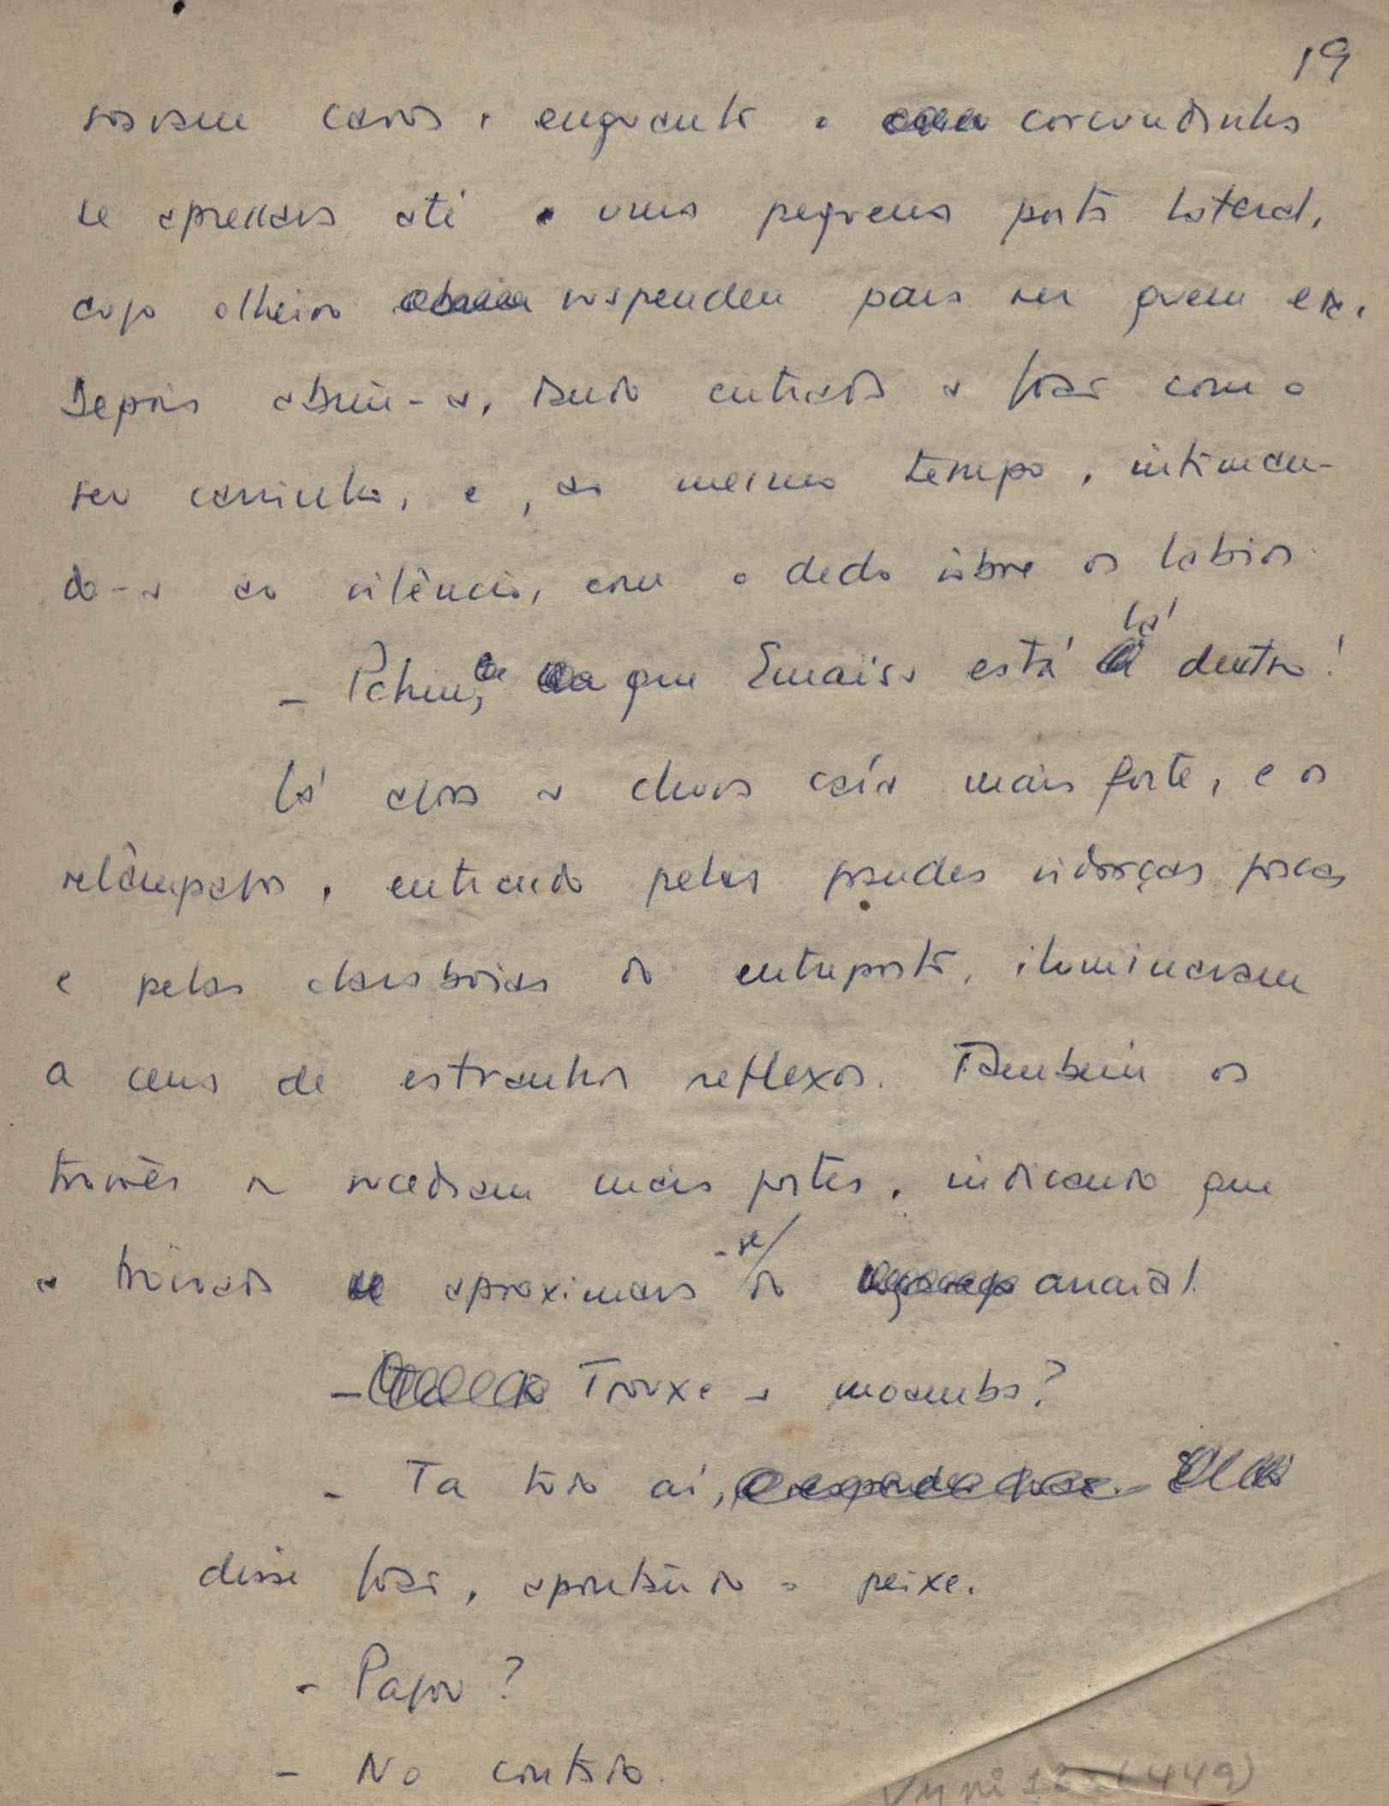 19
vosiam cavos, enquanto o corcundinha
se apressava até uma pequena porta lateral,
cujo olheiro suspendeu para ver quem era.
Depois abriu-a, dando entrada a José com o
seu carrinho, e, ao mesmo tempo, intiman-
do-a ao silêncio, com o dedo sôbre os labios.
- Pchiu, que Emaisa está lá dentro!
Lá fora a chuva caía mais forte, e os
relâmpagos, entrando pelas grandes vidraças foscas
e pelas claraboias do entreposto, iluminavam
a cena de estranhos reflexos. Tambem os
trovões se sucediam mais fortes, indicando que
a trovoada aproximava-se do arraial.
- Trouxe a moamba?
- Ta tudo aí,
disse José, apontando o peixe.
- Pagou?
- No contado.
(449)